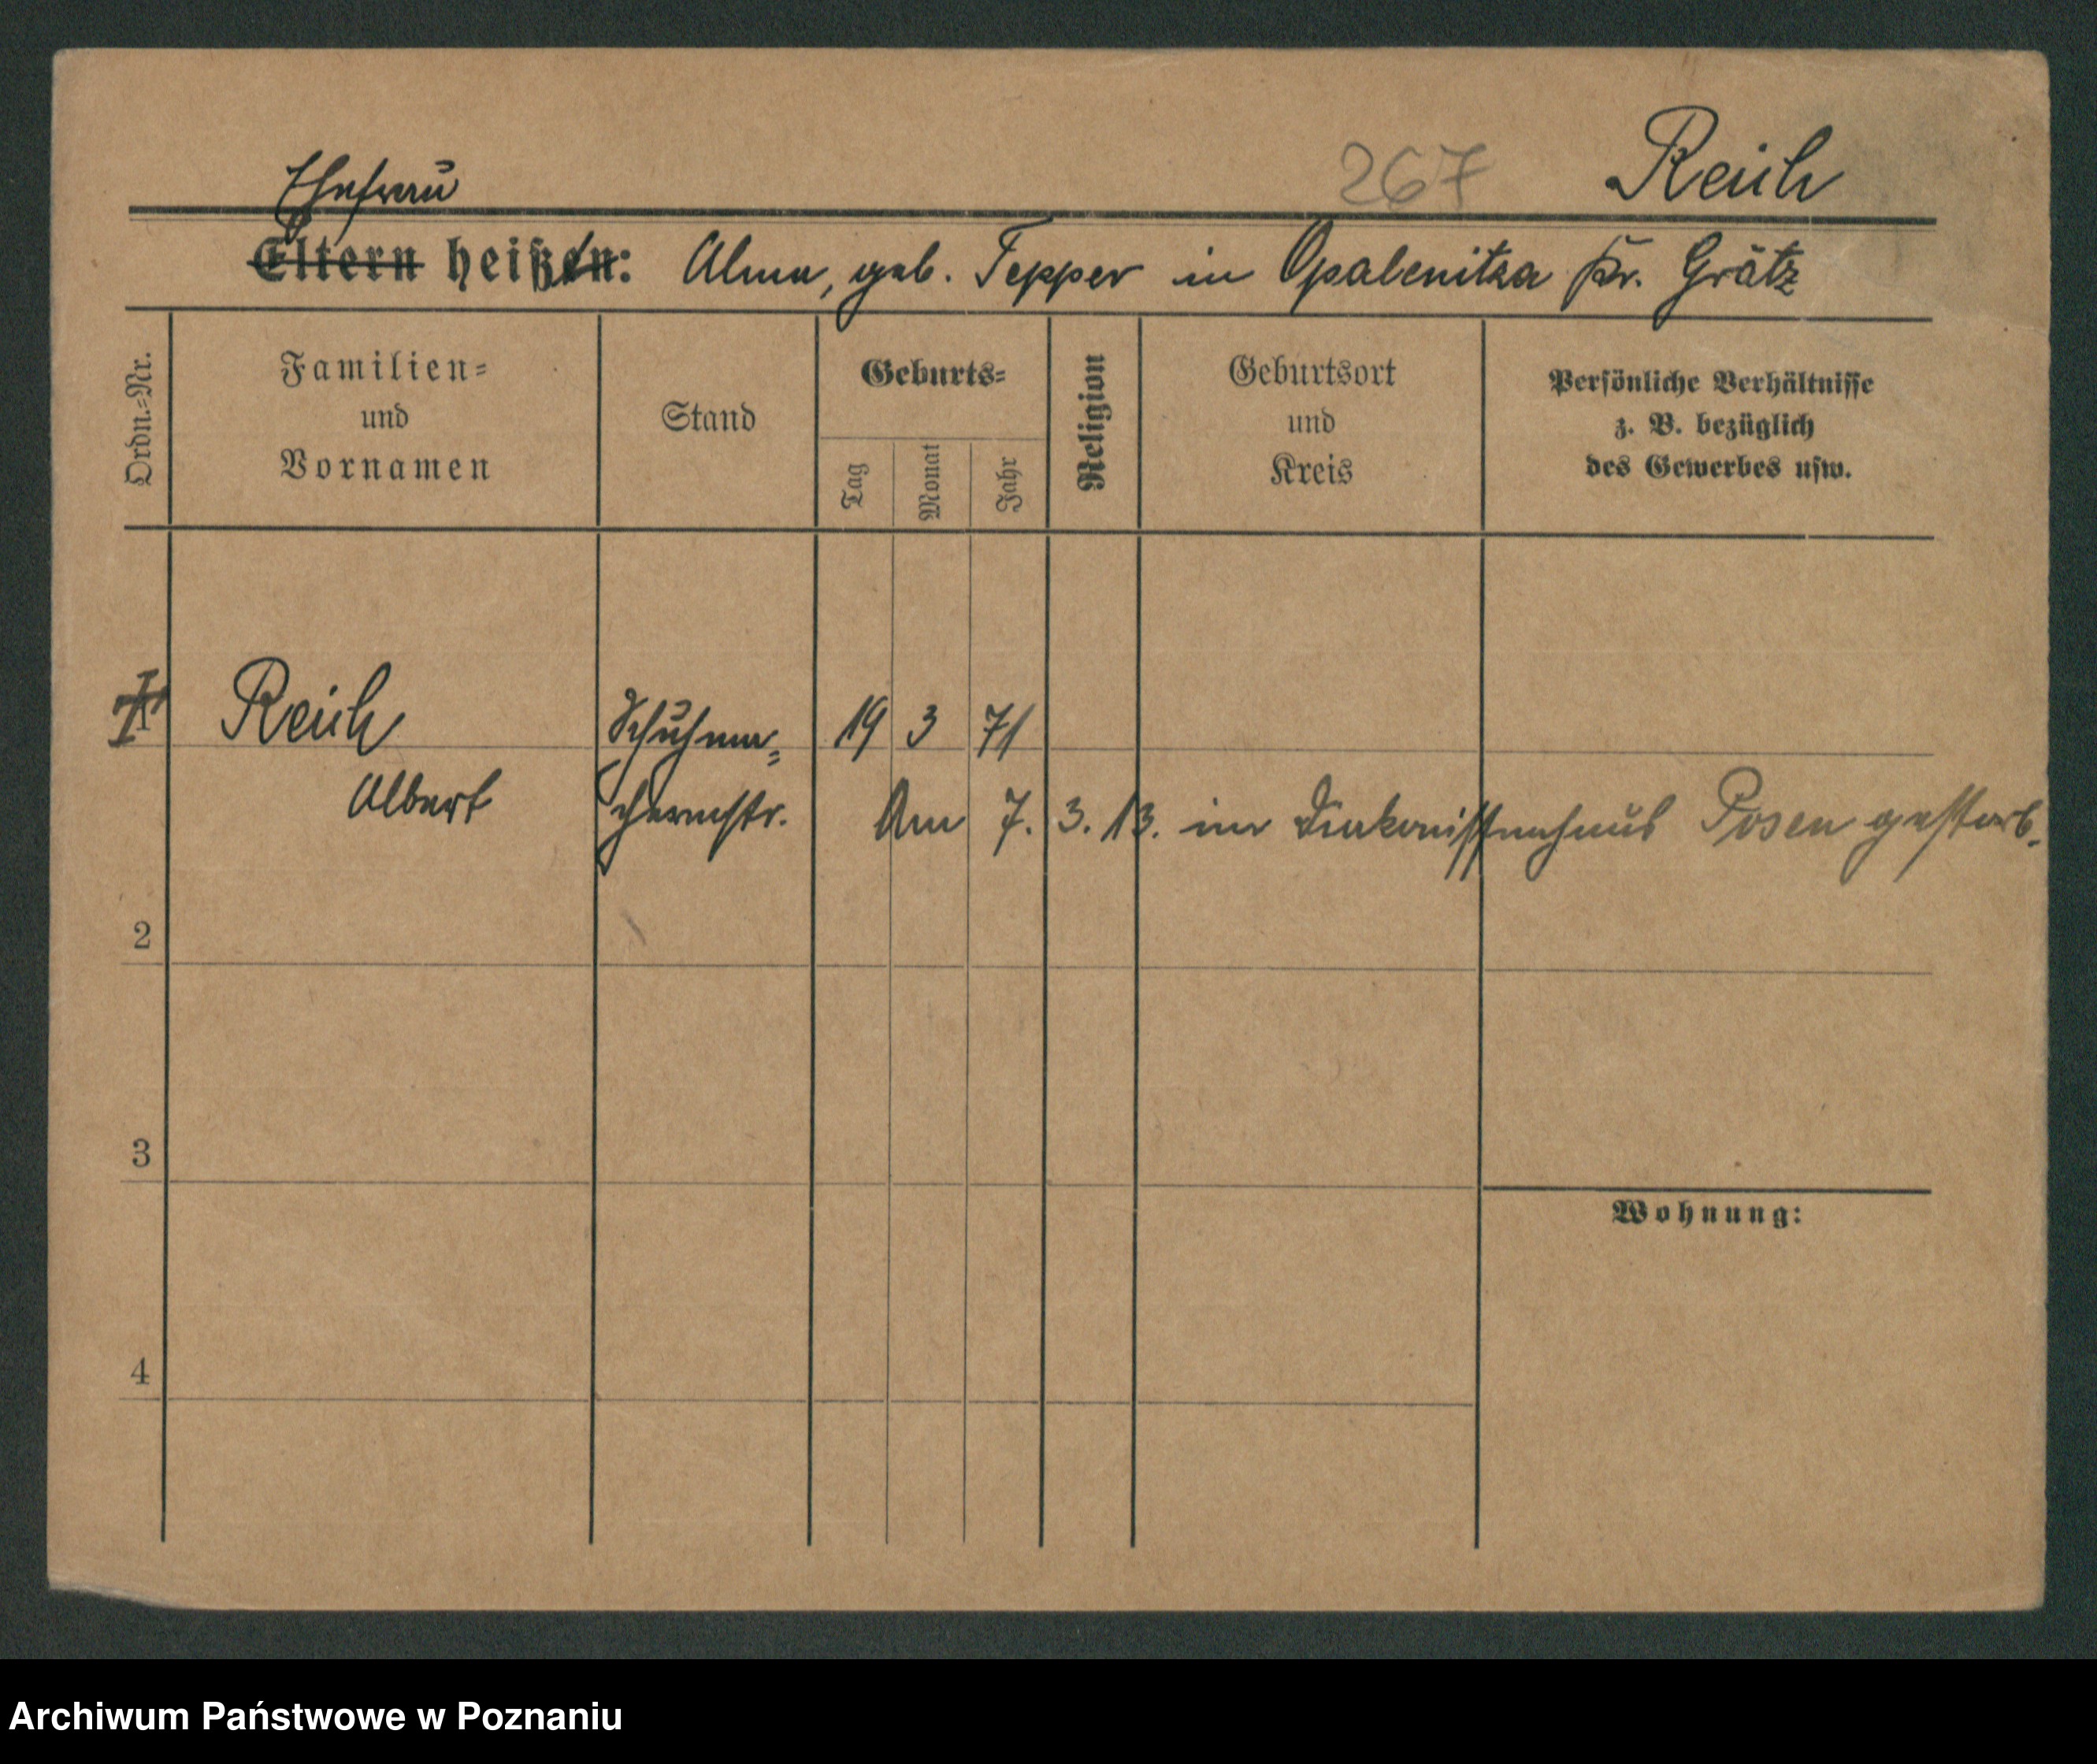 267 Reich
Ehefrau
Eltern heißen: Alma, geb. Tepper in Opalenitza Kr. Grätz
Ordn.-Nr.
Familien-
und
Vornamen
Stand
Geburts-
Tag
Monat
Jahr
Religion
Geburtsort
und
Kreis
Persönliche Verhältnisse
z. B. bezüglich
des Gewerbes usw.
1 Reich Schuhma- 19 3 71
Albert chermstr. Am 7. 3. 13. im Diakonissenhaus Posen gestorb.
2
3
Wohnung:
4
Archiwum Państwowe w Poznaniu